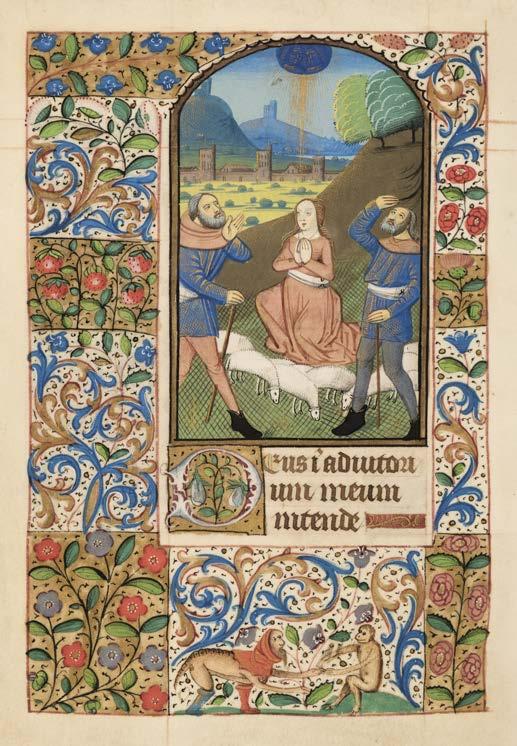 Deus i adiutori
um meum
intende